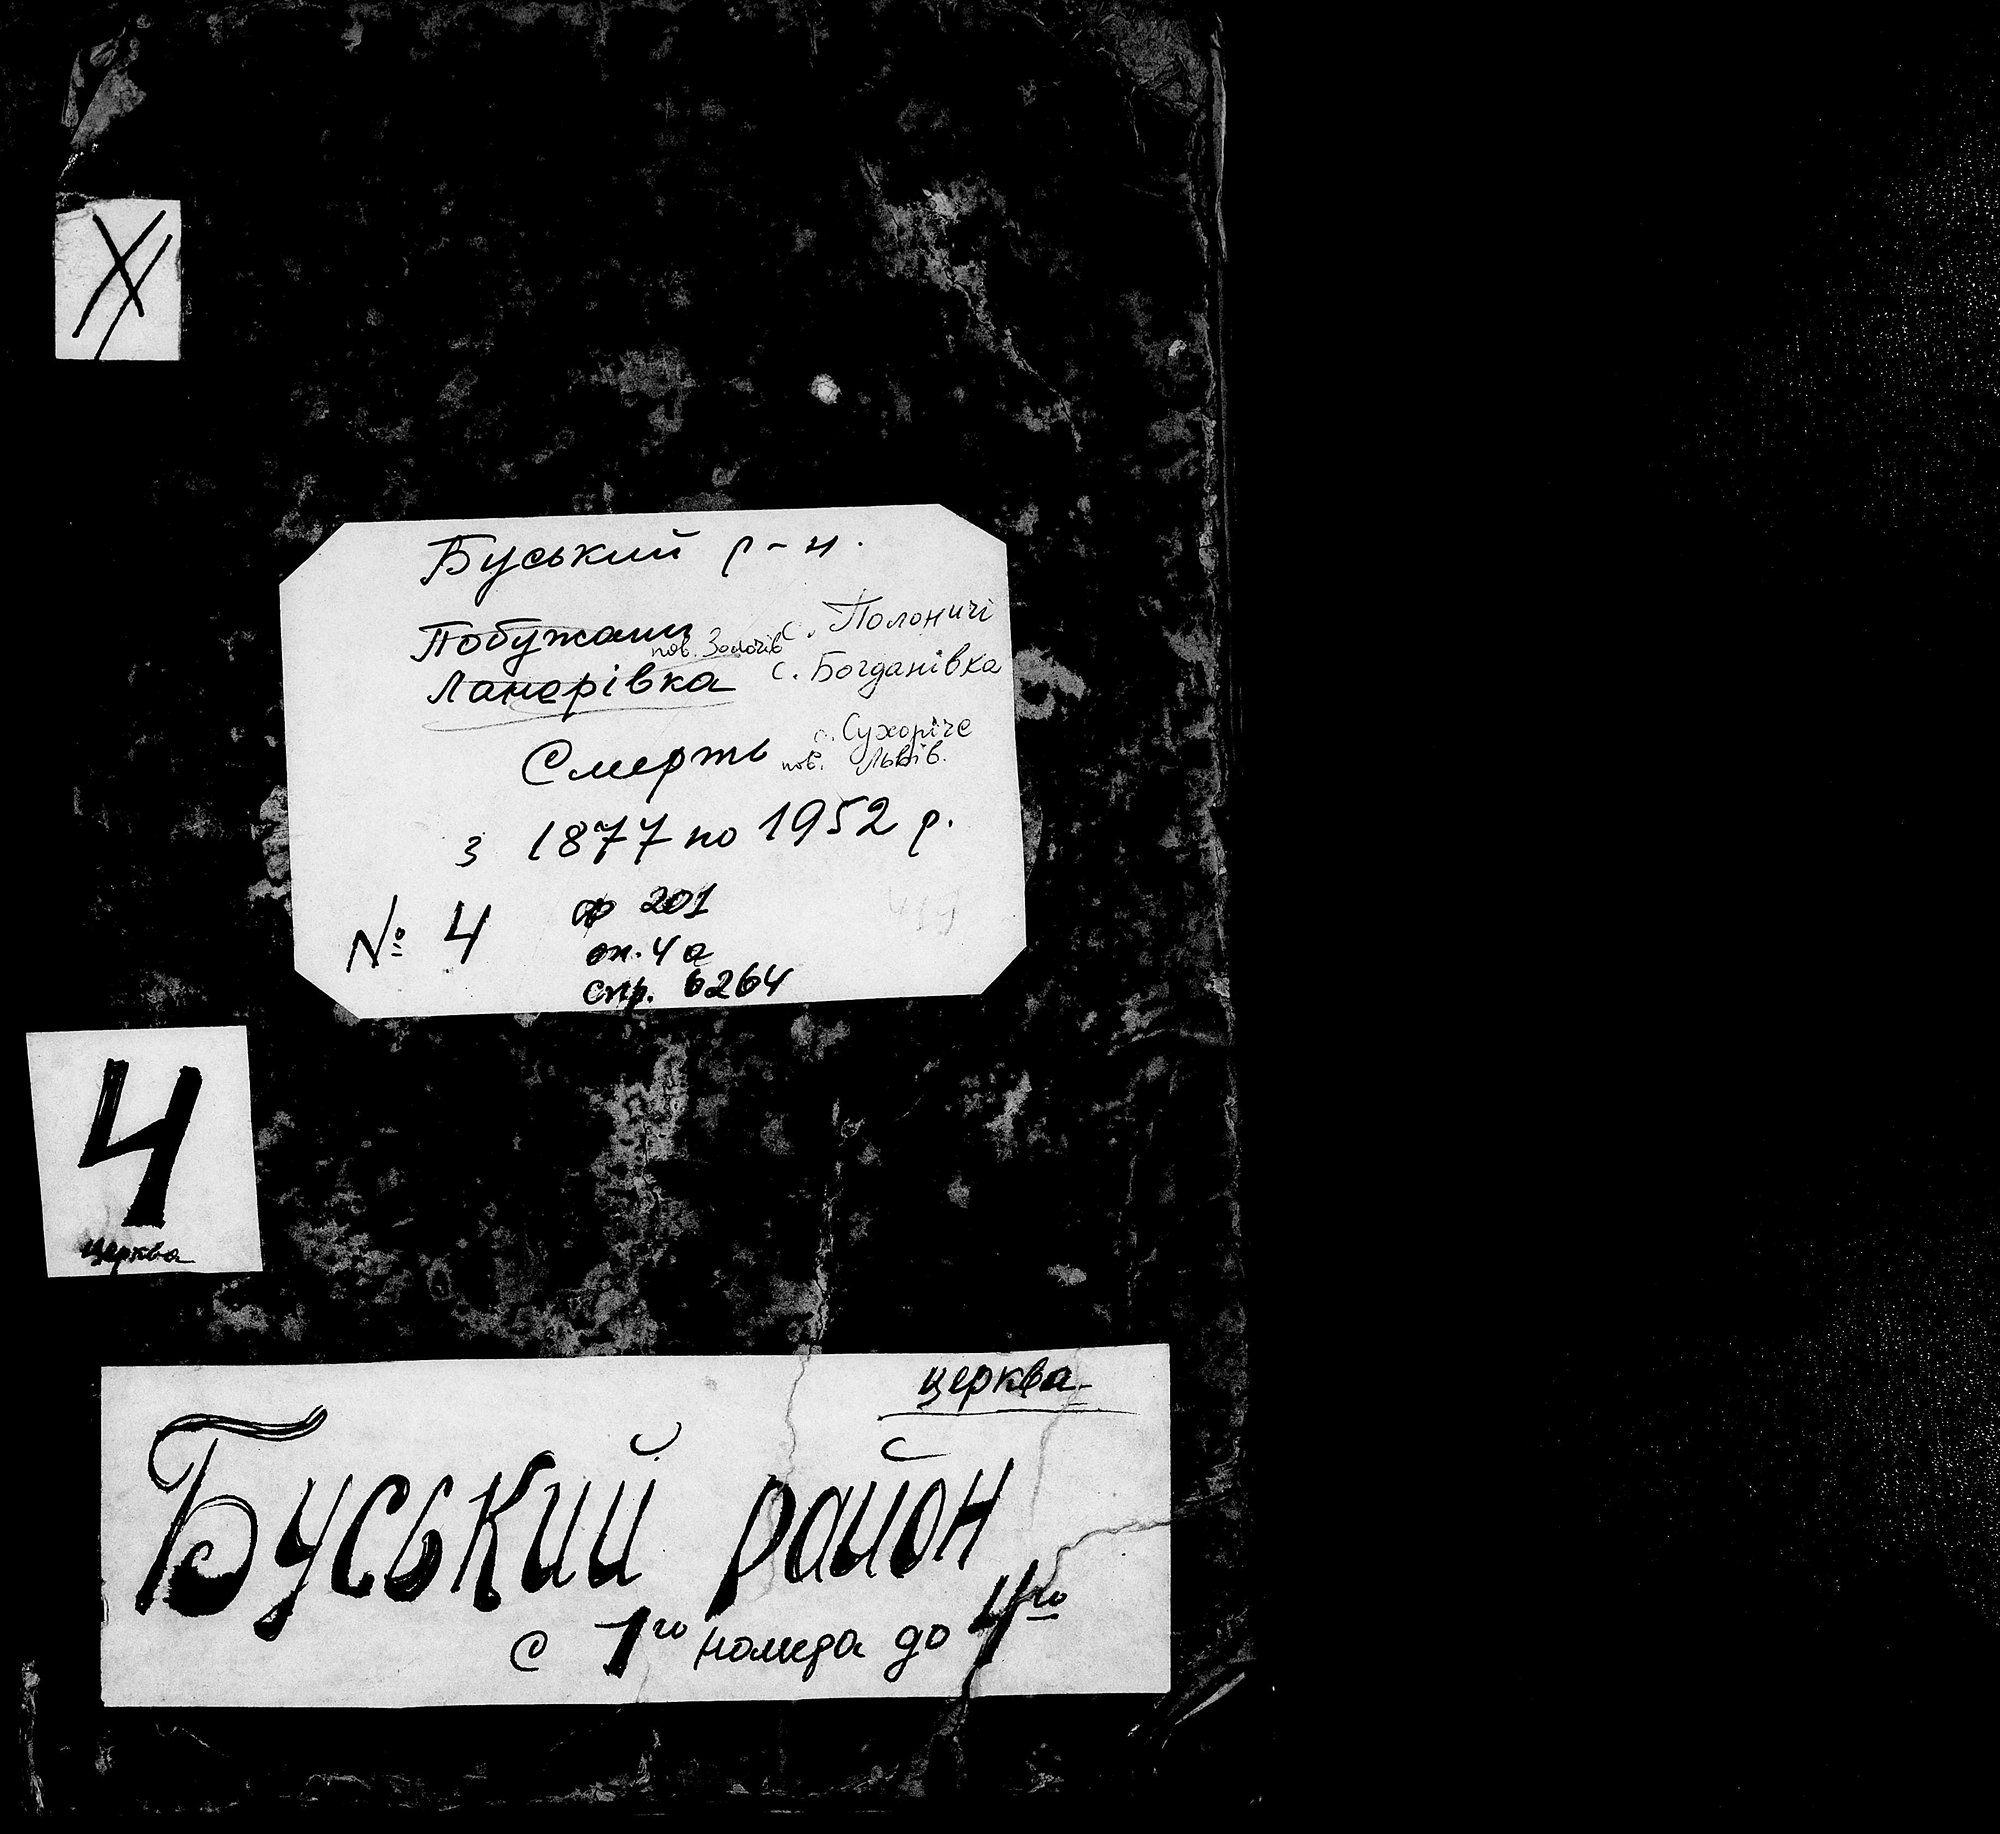 Буський р-н.
Побужани
пов. Золочів
с. Полоничі
Ланерівка
с. Богданівка
с. Сухоріче
пов. Львів.
Смерть
з 1877 по 1952 р.
№ 4
ф 201
оп. 4а
спр. 6264
4
церква
церква
Буський район
с 1го номера до 4го